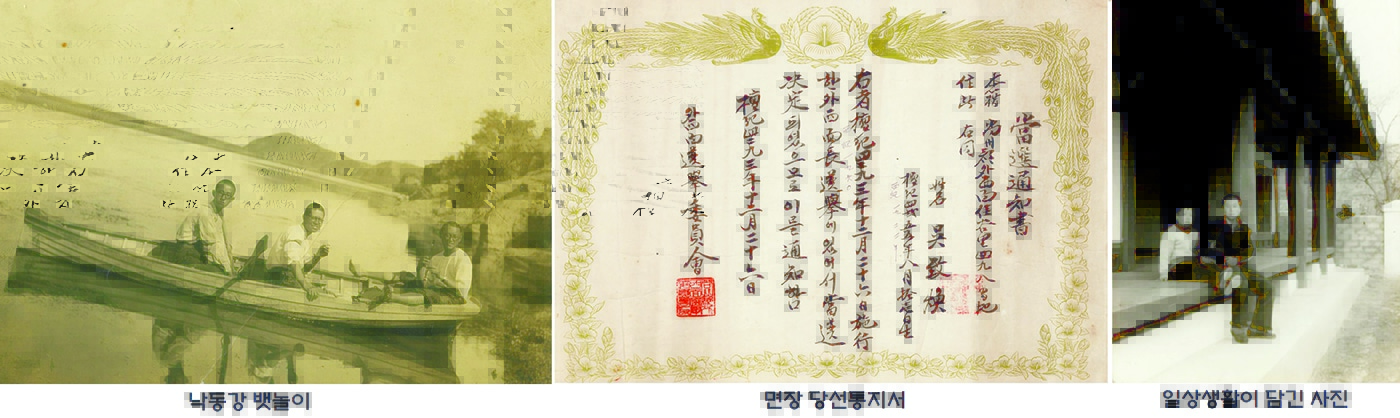 當選通知書
本籍 尙州郡外西面 里四九八番地
住所 右同
姓名 吳致煥
檀紀 年八月 日生
右者檀紀四二九三年十二月二十六日施行
한外西面長選擧에있어서當選
決定되었으므로이를通知함
檀紀四二九三年十二月二十六日
外西面選擧委員會
낙동강 뱃놀이
면장 당선통지서
일상생활이 담긴 사진